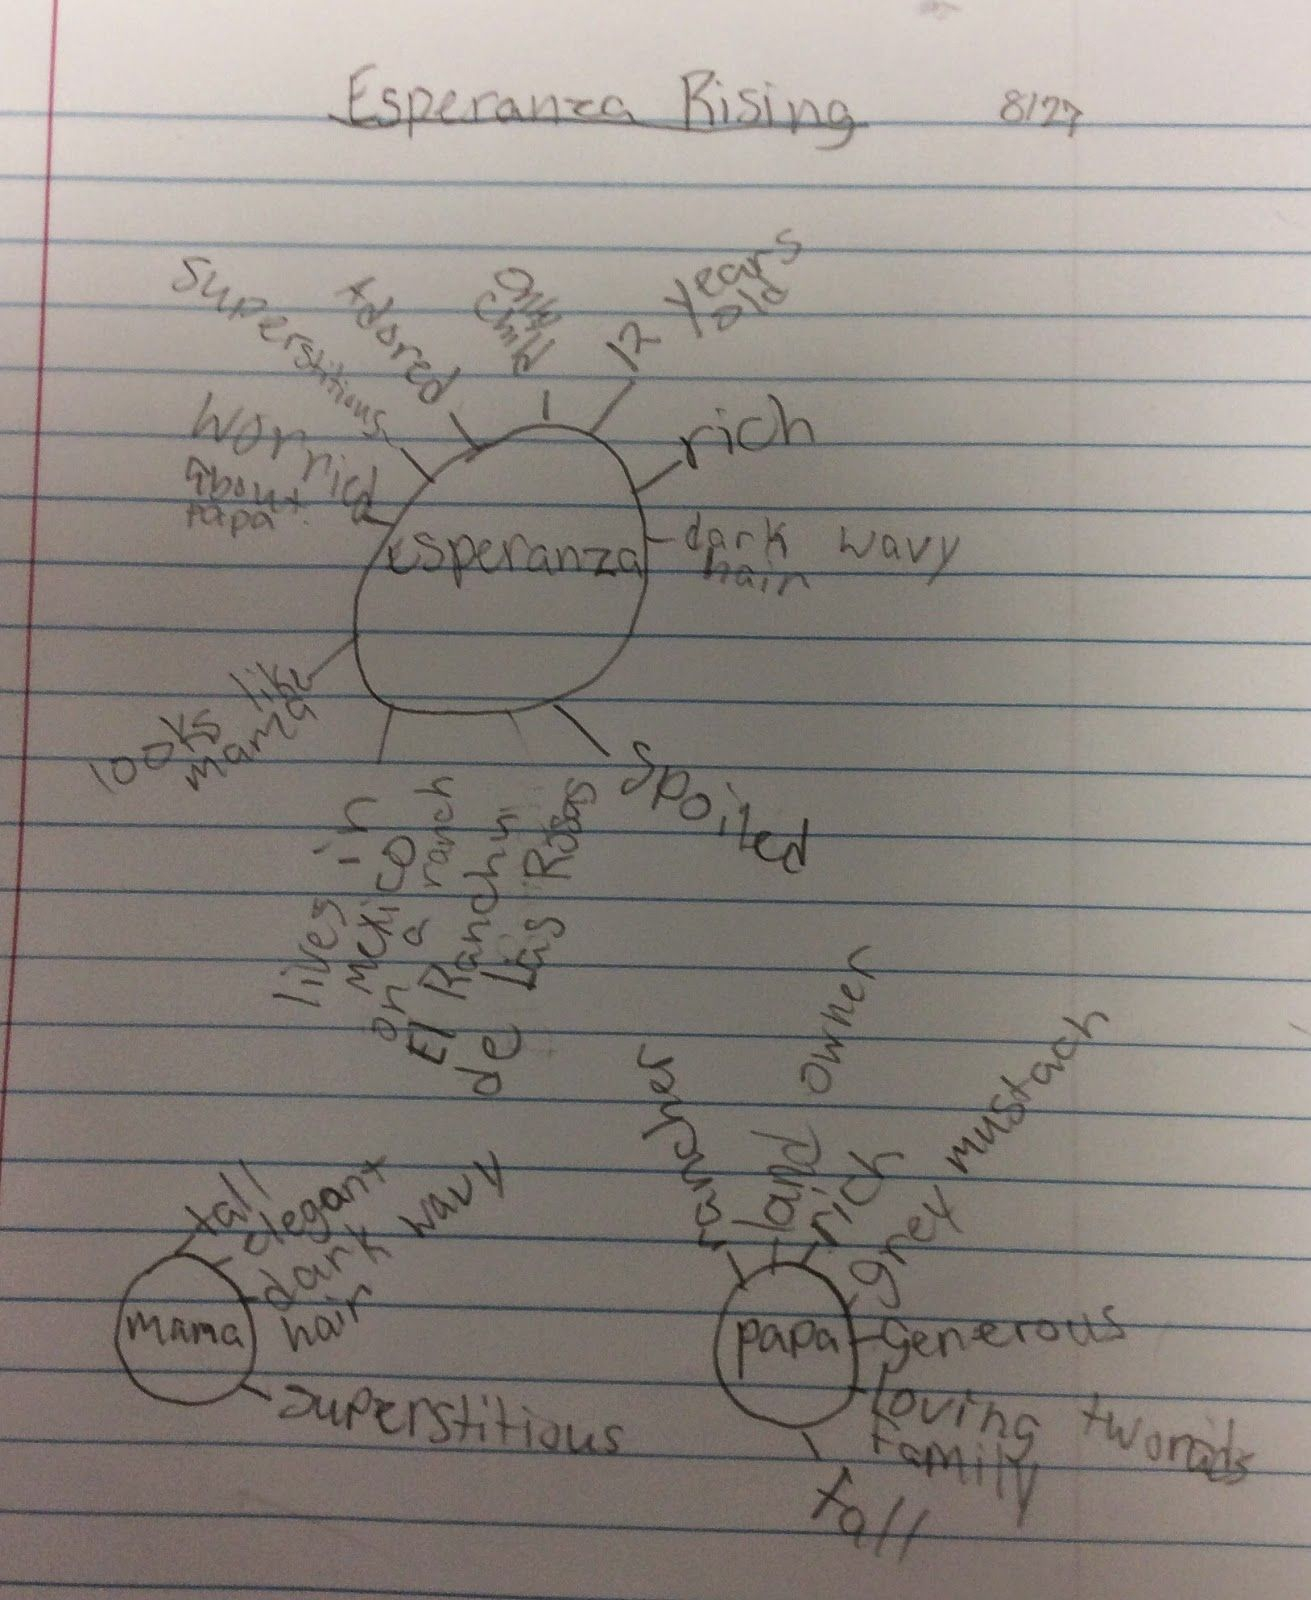 Esperanza Rising 8/27
Superstitious
Adored
Only
child
12 years
old
rich
Worried
About
Papa
Esperanza
dark wavy
hair
looks like
mama
lives in
mexico
on a ranch
El Ranch
de Las Rosas
Spoiled
mama
tall
elegant
dark wavy
hair
superstitious
papa
rancher
land owner
rich
grey mustach
Generous
Loving
family
tall